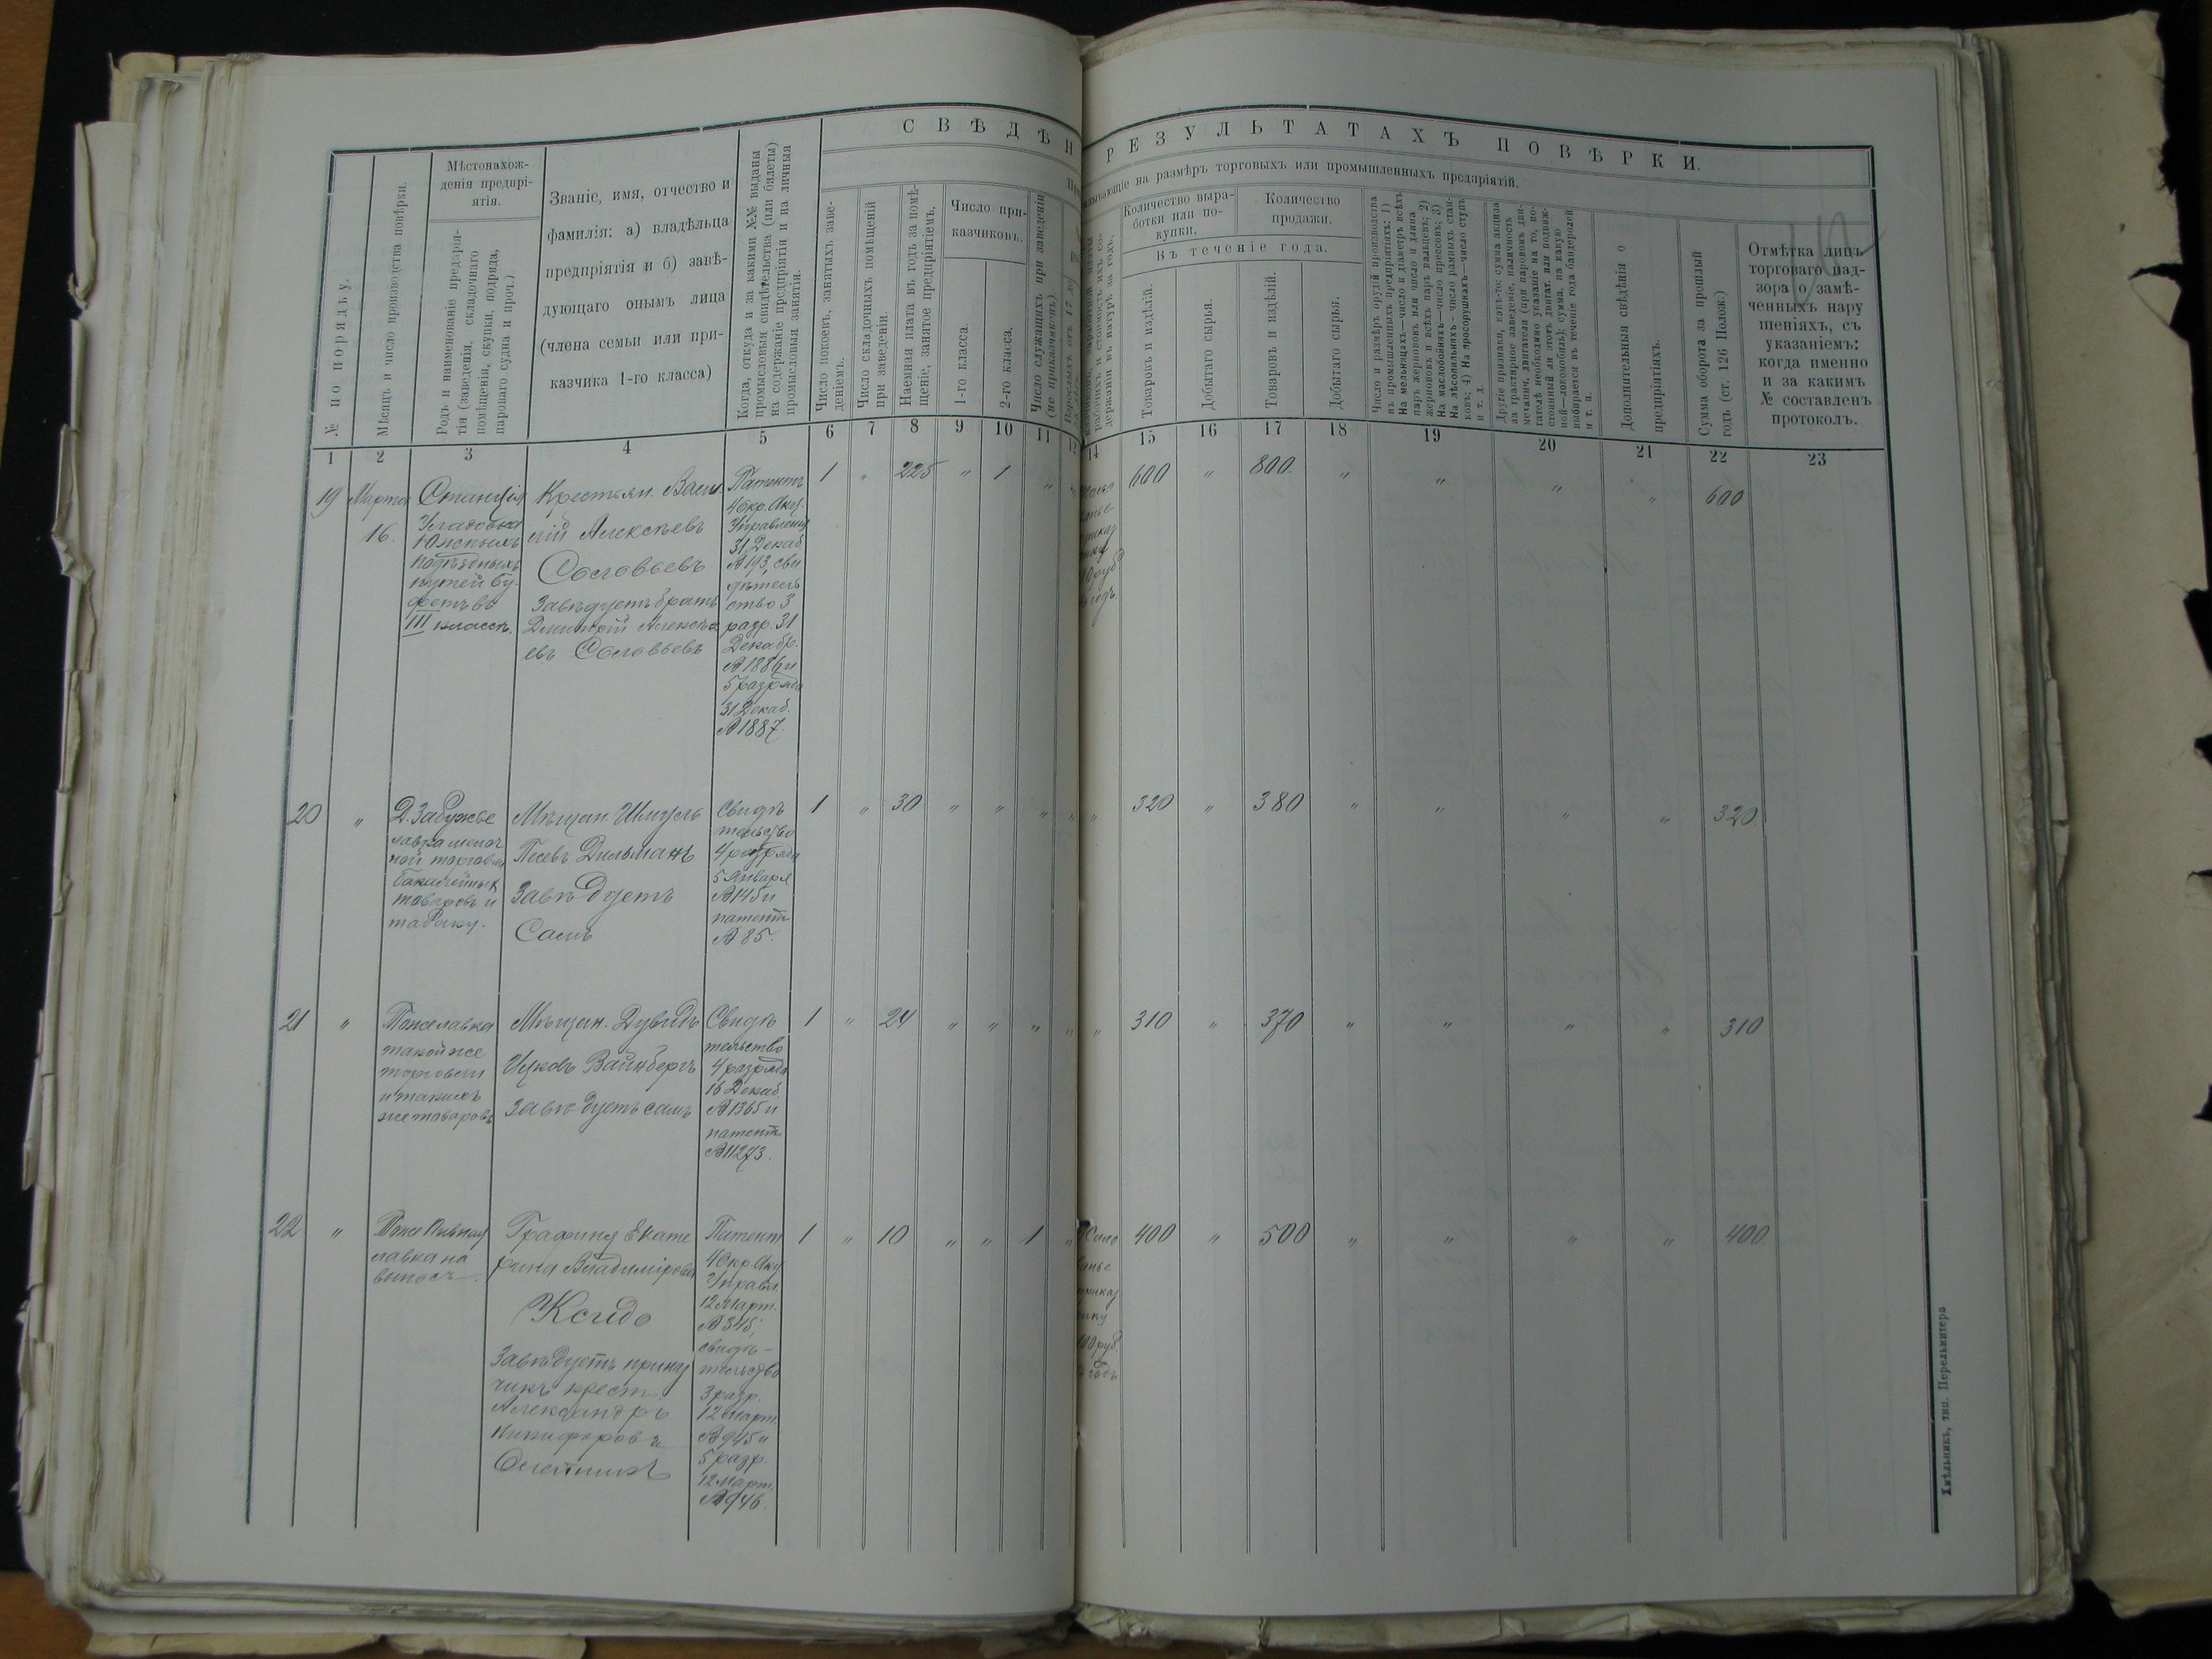 СВѢДѢН
РЕЗУЛЬТАТАХЪ ПОВѢРКИ.
зывающіе на размѣръ торговыхъ или промышленныхъ предпріятій.
№ по порядку.
Мѣсяцъ и число производства повѣрки.
Мѣстонахож-
денія предпрі-
ятія.
Родъ и наименованіе предпрія-
тія (заведенія, складочнаго
помѣщенія, скупки, подряда,
пароваго судна и проч.)
Званіе, имя, отчество и
фамилія: а) владѣльца
предпріятія и б) завѣ-
дующаго онымъ лица
(члена семьи или при-
казчика 1-го класса)
Когда, откуда и за какими №№ выданы
промысловыя свидѣтельства (или билеты)
на содержаніе предпріятія и на личныя
промысловыя занятія.
Число покоевъ, занятыхъ заве-
деніемъ.
Число складочныхъ помѣщеній
при заведеніи.
Наемная плата въ годъ за помѣ-
щеніе, занятое предпріятіемъ.
Число при-
казчиковъ.
1-го класса.
2-го класса.
Число служащихъ при заведеніи
(не приказчиковъ).
Количество выра-
ботки или по-
купки.
Количество
продажи.
Въ теченіе года.
Товаровъ и издѣлій.
Добытаго сырья.
Товаровъ и издѣлій.
Добытаго сырья.
Число и размѣръ орудій производства
въ промышленныхъ предпріятіяхъ: 1)
На мельницахъ—число и діаметръ всѣхъ
паръ жернововъ или число и длина
жернововъ и всѣхъ паръ вальцевъ; 2)
На маслобойняхъ—число прессовъ; 3)
На лѣсопильняхъ—число рамныхъ стан-
ковъ; 4) На просорушкахъ—число ступъ
и т. д.
Дополнительныя свѣдѣнія о
предпріятіяхъ.
Сумма оборота за прошлый
годъ (ст. 126 Полож.)
Отмѣтка лицъ
торговаго над-
зора о замѣ-
ченныхъ нару
шеніяхъ, съ
указаніемъ:
когда именно
и за какимъ
№ составленъ
протоколъ.
1 2 3 4 5 6 7 8 9 10 11
14 15 16 17 18 19 20 21 22 23
19 Марта
16.
Станція
Уладовка
Южныхъ
подъѣздныхъ
путей бу-
фетъ въ
III классѣ.
Крестьян. Васи-
лій Алексѣевъ
Соловьевъ
Завѣдуетъ братъ
Дмитрій Алексѣ-
евъ Соловьевъ
Патентъ
4 Окр. Акц.
Управленія
31 Декаб.
№ 193, сви
дѣтель
ство 3
разр. 31
Декабр.
№ 1886 и
5 разряда
31 Декаб.
№ 1887.
1 „ 225 „ 1 „
600 „ 800. „ „ „ „ 600
20 „
Д. Забужье
лавка мелоч
ной торговли
бакалейныхъ
товаровъ и
табаку.
Мѣщан. Шмуль
Песевъ Дильманъ
Завѣдуетъ
Самъ
Свидѣ
тельство
4 разряда
5 Января
№ 145 и
патентъ
№ 85.
1 „ 30 „ „ „ „
320 „ 380 „ „ „ „ 320.
21 „
Тоже лавка
такой же
торговли
и такихъ
же товаровъ
Мѣщан. Дувидъ
Ицковъ Вайнбергъ
Завѣдуетъ самъ
Свидѣ
тельство
4 разряда
16 Декаб.
№ 1365 и
патентъ
№ 11273.
1 „ 24 „ „ „ „
310 „ 370 „ „ „ „ 310
22 „
Тоже Пивная
лавка на
выносъ.
Графиня Екате
рина Владиміровна
Ксидо
Завѣдуетъ приказ
чикъ крест.
Александръ
Никифоровъ
Олейникъ
Патент
4 Окр. Акц.
Управл.
12 Март.
№ 345,
свидѣ-
тельство
3 разр.
12 Март.
№ 945 и
5 разр.
12 Март.
№ 946.
1 „ 10 „ „ 1 „
400 „ 500 „ „ „ „ 400
Хмѣльникъ, тип. Перельмитера